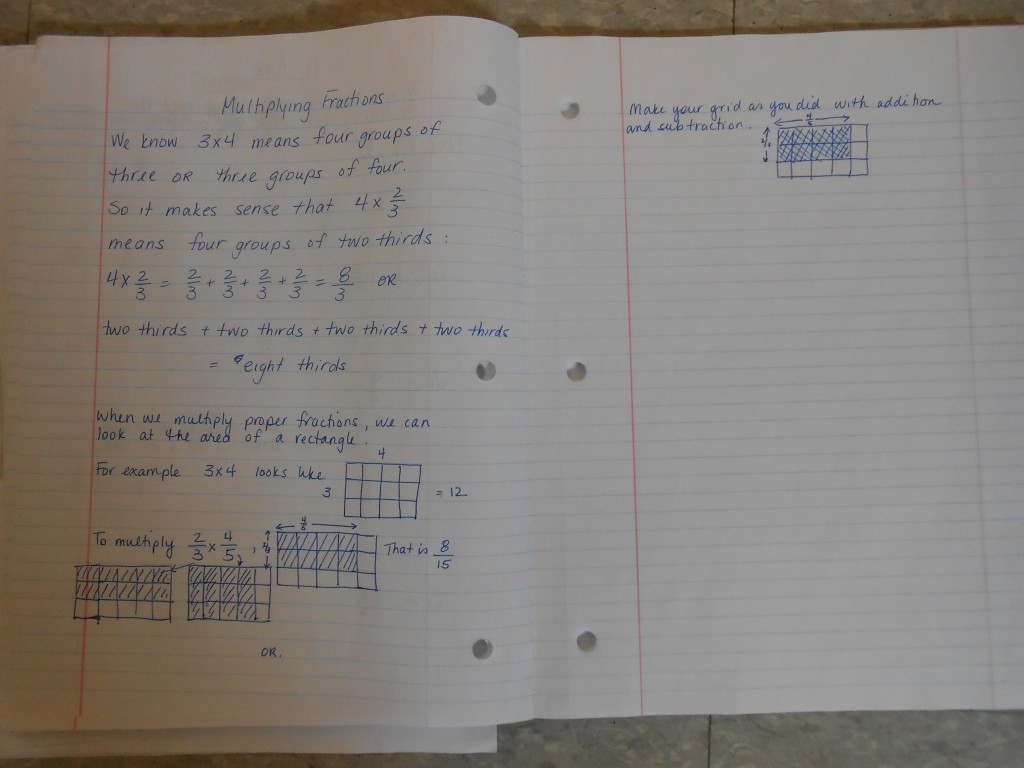 Multiplying Fractions
We know 3x4 means four groups of
three OR three groups of four.
So it makes sense that 4 x 2/3
means four groups of two thirds :
4 x 2/3 = 2/3 + 2/3 + 2/3 + 2/3 = 8/3 OR
two thirds + two thirds + two thirds + two thirds
= eight thirds
When we multiply proper fractions, we can
look at the area of a rectangle.
4
For example 3x4 looks like
3
= 12
4/5
To multiply 2/3 x 4/5, 2/3
That is 8/15
OR.
Make your grid as you did with addition
and subtraction.
4/5